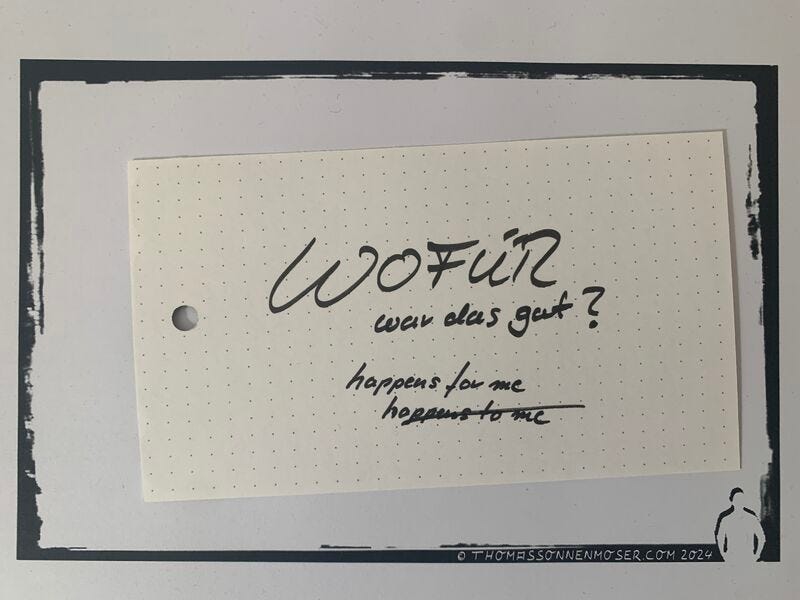 WOFÜR
war das gut?
happens for me
happens to me
© THOMASSONNENMOSER.COM 2024